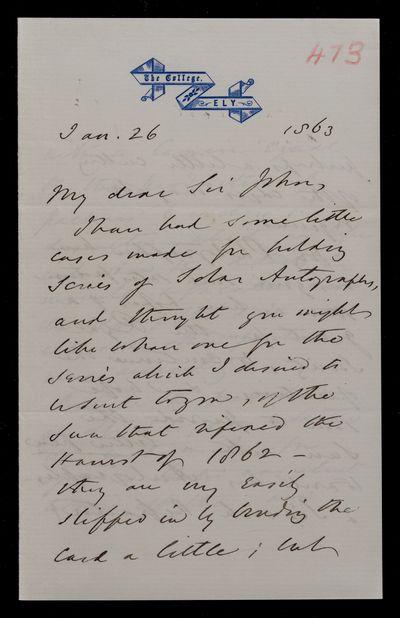 473
The College.
ELY
Jan. 26 1863
My dear Sir John,
I have had some little
cases made for holding
Series of Solar Autographs,
and thought you might
like to have one for the
Series which I desired to
present to you, of the
Sun that ripened the
Harvest of 1862 –
they are very easily
slipped in by bending the
card a little; but